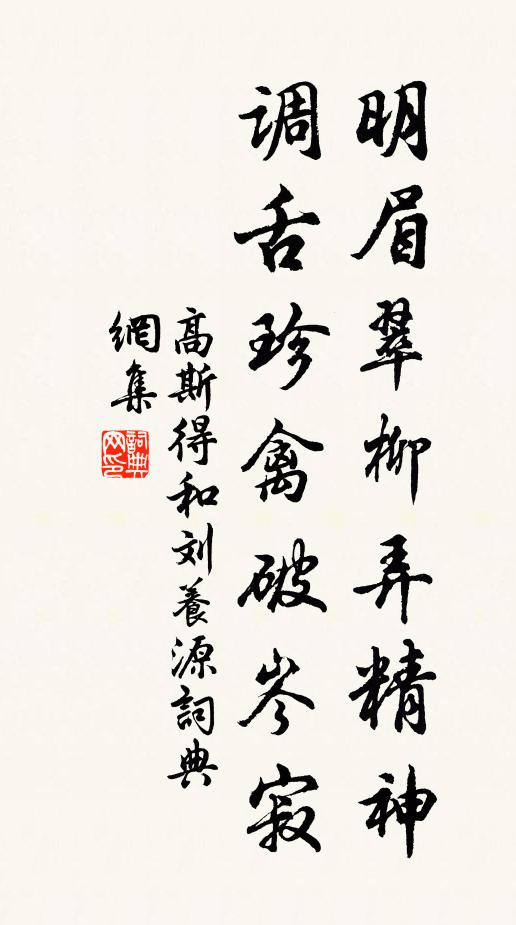 明眉翠柳弄精神
调舌珍禽破岑寂
高斯得和刘养源詞典
網集
詞典网印